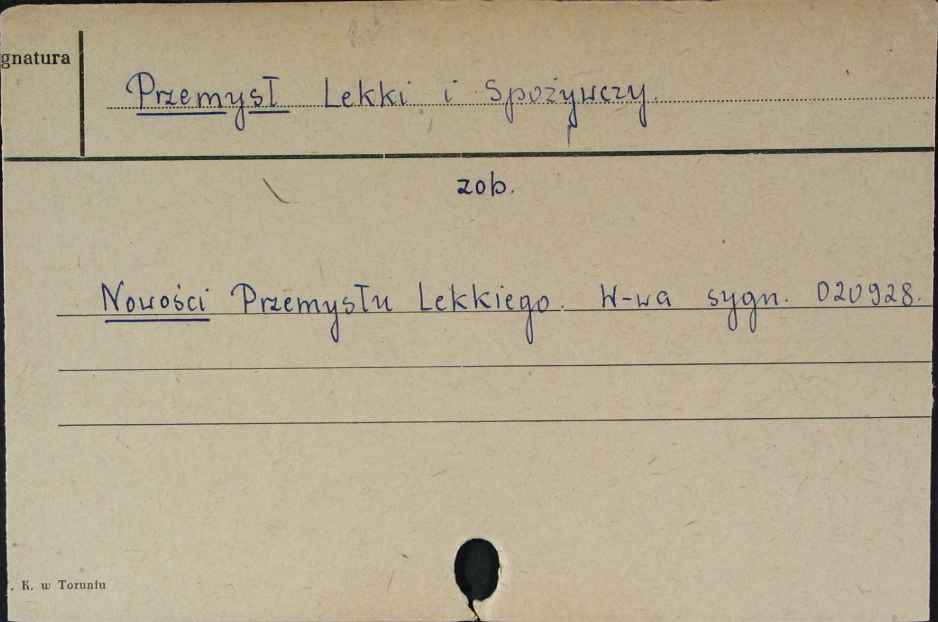 gnatura
Przemysł Lekki i Spożywczy.
zob.
Nowości Przemysłu Lekkiego. W-wa sygn. 020928.
. K. w Toruniu